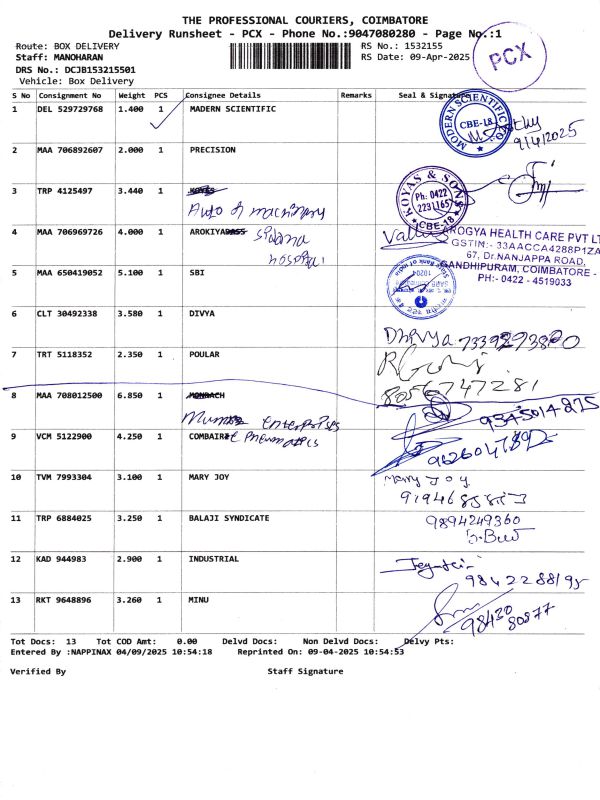 THE PROFESSIONAL COURIERS, COIMBATORE
Delivery Runsheet - PCX - Phone No.:9047080280 - Page No.:1
Route: BOX DELIVERY
RS No.: 1532155
Staff: MANOHARAN
RS Date: 09-Apr-2025
PCX
DRS No.: DCJB153215501
Vehicle: Box Delivery
S No Consignment No Weight PCS Consignee Details Remarks Seal & Signature
1 DEL 529729768 1.400 1 MADERN SCIENTIFIC
MODERN SCIENTIFIC CO
CBE-18
9/4/2025
2 MAA 706892607 2.000 1 PRECISION
3 TRP 4125497 3.440 1
Auto & machinary
KOYAS & SONS
Ph: 0422
2231165
CBE-18
4 MAA 706969726 4.000 1 AROKIYA
AROGYA HEALTH CARE PVT LT
GSTIN:- 33AACCA4288P1ZA
67, Dr.NANJAPPA ROAD,
GANDHIPURAM, COIMBATORE -
PH:- 0422 - 4519033
5 MAA 650419052 5.100 1 SBI
State Bank of India
6 CLT 30492338 3.580 1 DIVYA
Dhivya
7 TRT 5118352 2.350 1 POULAR
8056747281
8 MAA 708012500 6.850 1
Enterprises
9345014275
9 VCM 5122900 4.250 1 COMBAIR
Pneumatics
10 TVM 7993304 3.100 1 MARY JOY
Mary Joy
11 TRP 6884025 3.250 1 BALAJI SYNDICATE
9894249360
12 KAD 944983 2.900 1 INDUSTRIAL
13 RKT 9648896 3.260 1 MINU
98430
80877
Tot Docs: 13 Tot COD Amt: 0.00 Delvd Docs: Non Delvd Docs: Delvy Pts:
Entered By :NAPPINAX 04/09/2025 10:54:18 Reprinted On: 09-04-2025 10:54:53
Verified By Staff Signature